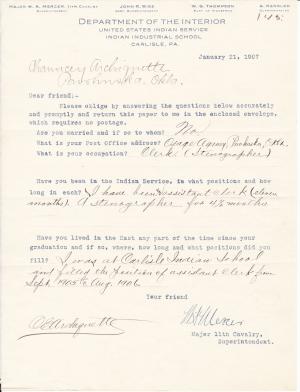 MAJOR W. A. MERCER, 11TH CAVALRY
JOHN R. WISE
W. G. THOMPSON
A. KENSLER
DEPARTMENT OF THE INTERIOR
UNITED STATES INDIAN SERVICE
INDIAN INDUSTRIAL SCHOOL
CARLISLE, PA.
January 21, 1907
Chauncey Archiquette
Pawhuska, Okla.
Dear friend:-
Please oblige by answering the questions below accurately
and promptly and return this paper to me in the enclosed envelope,
which requires no postage.
Are you married and if so to whom? No.
What is your Post Office address? Osage Agency, Pawhuska, Okla.
What is your occupation? Clerk (Stenographer)
Have you been in the Indian Service, in what positions and how
long in each? I have been assistant clerk (eleven
months). A stenographer for 4 1/2 months
Have you lived in the East any part of the time since your
graduation and if so, where, how long and what positions did you
fill? I was at Carlisle Indian School
and filled the position of assistant clerk from
Sept. 1905 to Aug. 1906
Your friend
W A Mercer
C E Archiquette
Major 11th Cavalry,
Superintendent.